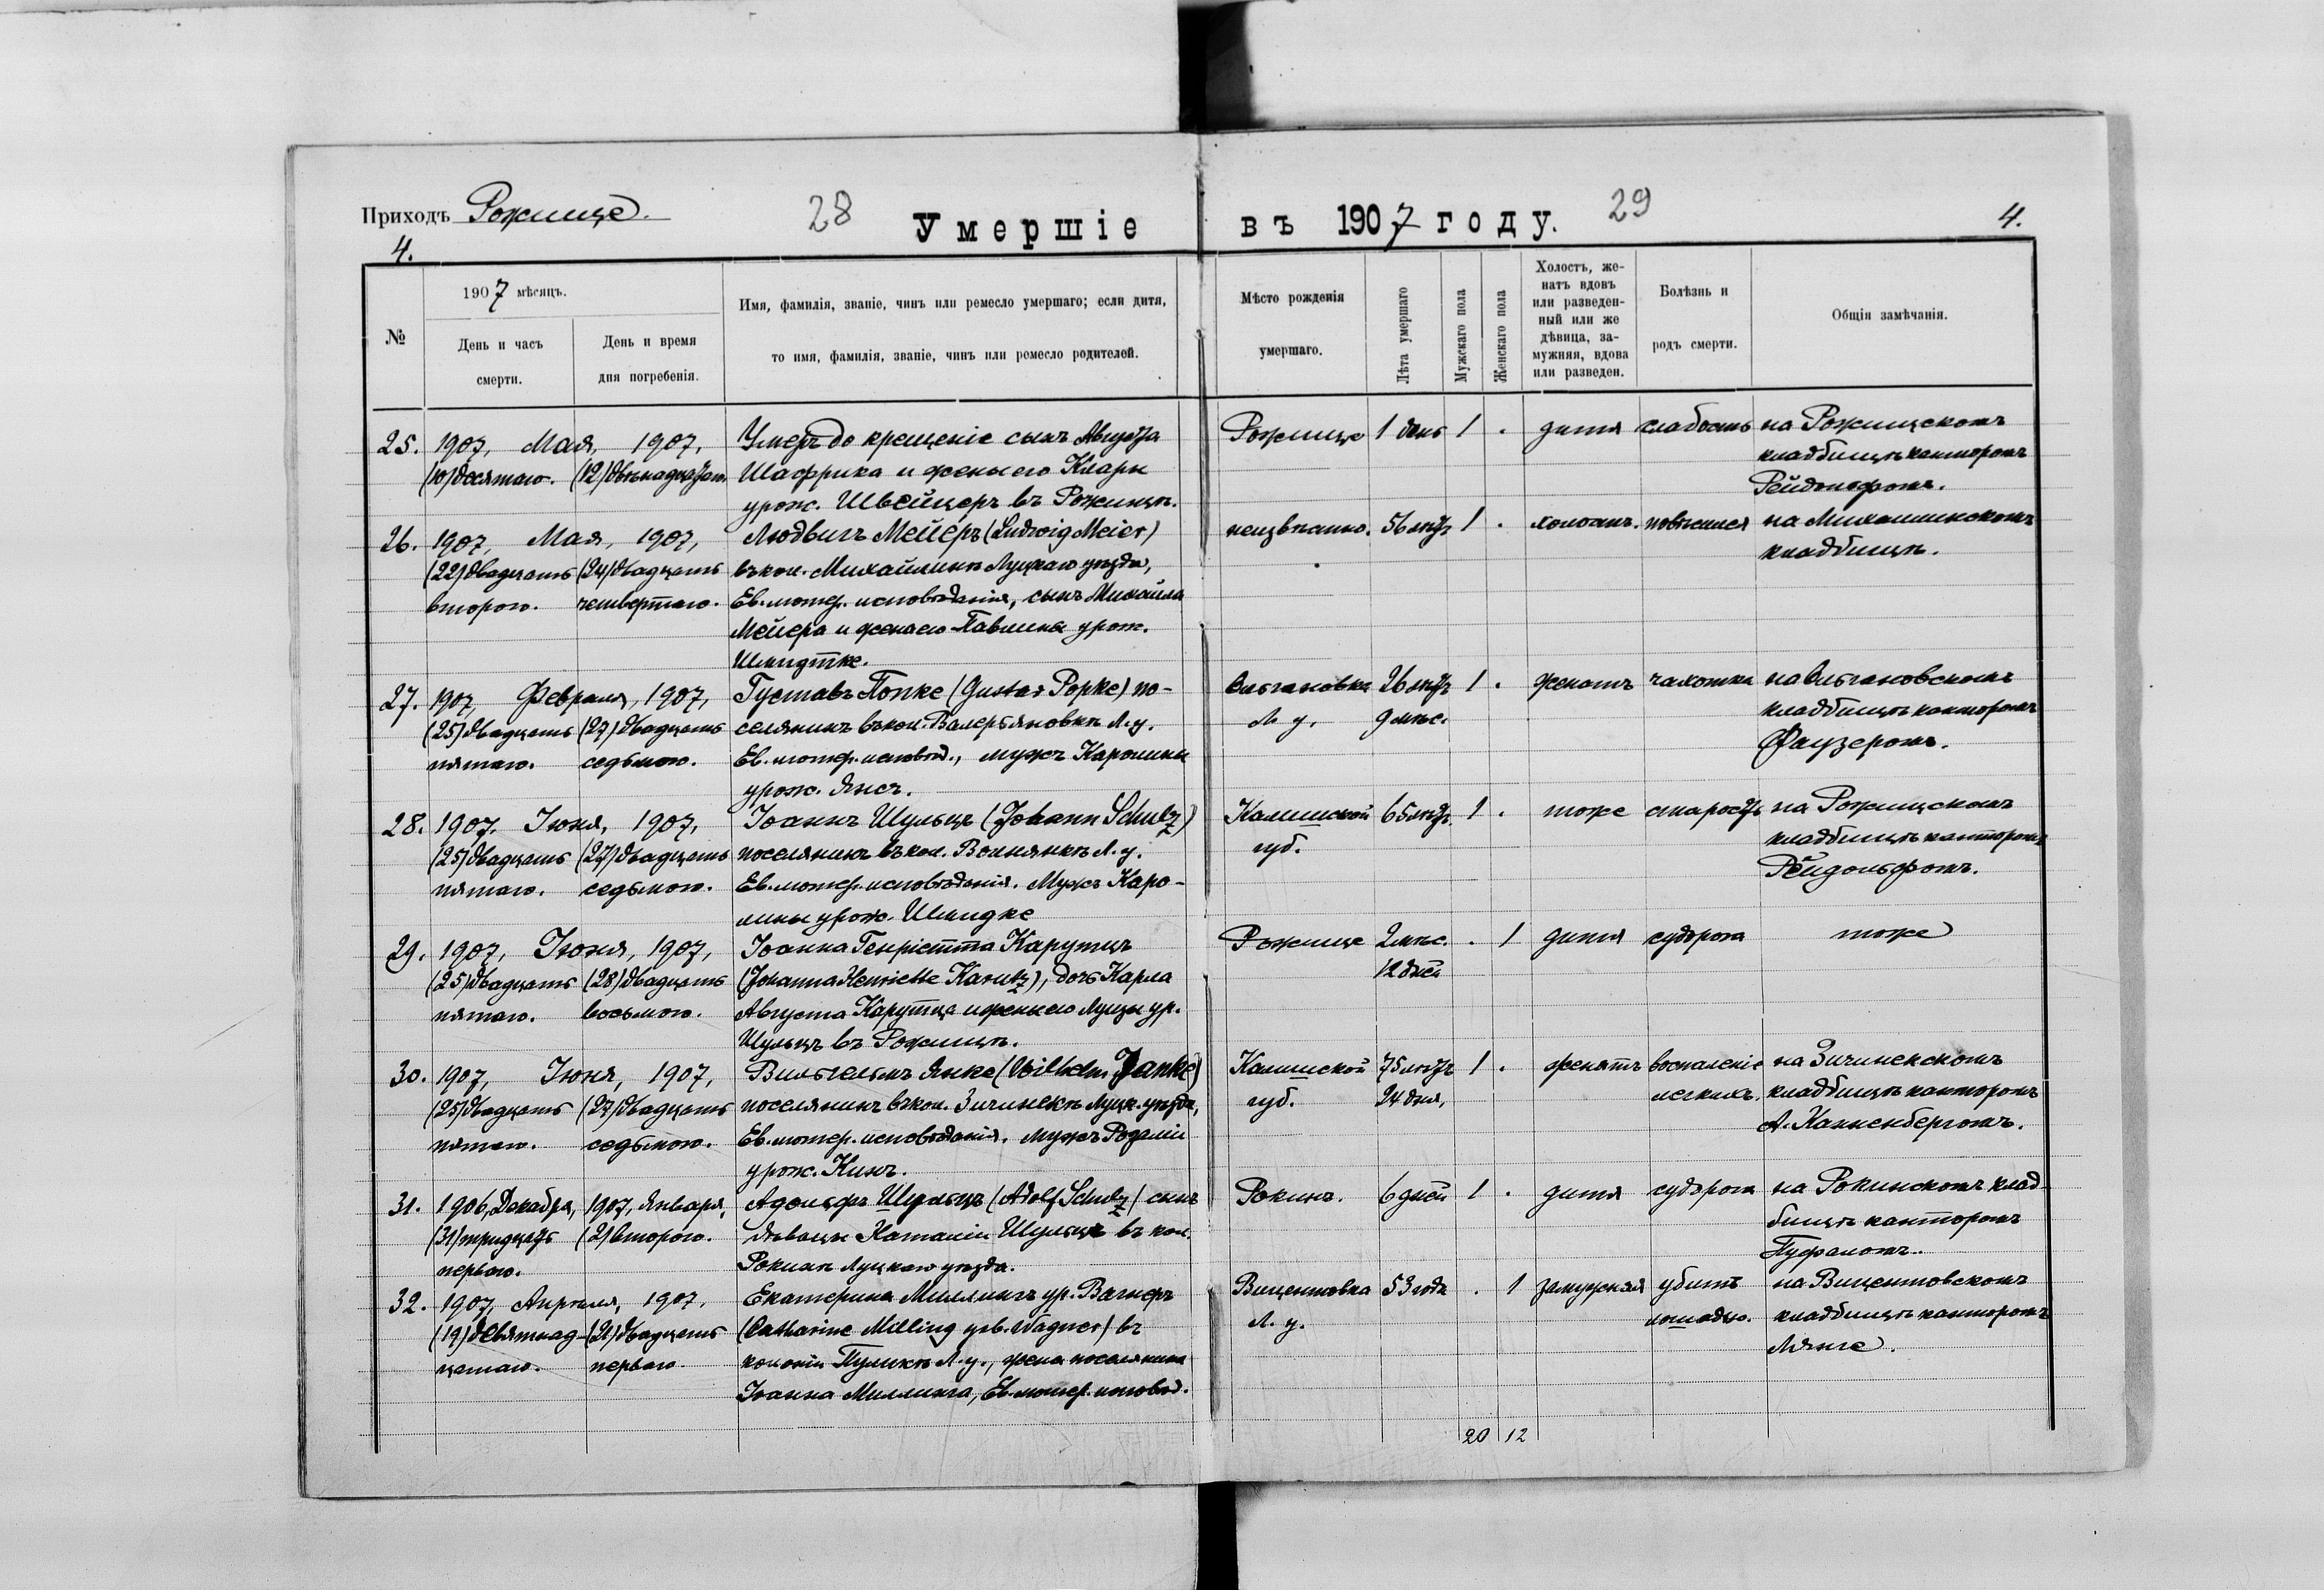 Приходъ Рожище.
28
Умершіе
въ 1907 году.
29
4.
4.
№
1907 мѣсяцъ.
День и часъ
смерти.
День и время
дня погребенія.
Имя, фамилія, званіе, чинъ или ремесло умершаго; если дитя,
то имя, фамилія, званіе, чинъ или ремесло родителей.
Мѣсто рожденія
умершаго.
Лѣта умершаго
Мужскаго пола
Женскаго пола
Холостъ, же-
натъ вдовъ
или разведен-
ный или же
дѣвица, за-
мужняя, вдова
или разведен.
Болѣзнь и
родъ смерти.
Общія замѣчанія.
25. 1907, Мая, 1907, Умеръ до крещеніе сынъ Августа Рожище 1 день 1 . дитя слабость на Рожищскомъ
(10) десятаго. (12) двѣнадцатаго. Шафрика и жены его Клары кладбищѣ канторомъ
урож. Швейцеръ въ Рожищѣ. Рейдольфомъ.
26. 1907, Мая, 1907, Людвигъ Мейеръ (Ludwig Meier) неизвѣстно. 56 лѣтъ 1 . холостъ. повѣсился на Михалинскомъ
(22) двадцать (24) двадцать въ кол. Михайлинѣ Луцкаго уѣзда, кладбищѣ.
второго. четвертаго. Ев. лютер. исповѣданія, сынъ Михаила
Мейера и жена его Павлины урож.
Шмидтке.
27. 1907, Февраля, 1907, Густавъ Попке (Gustav Popke) по- Ольгановка 26 лѣтъ 1 . женатъ чахотка на Ольгановскомъ
(25) двадцать (27) двадцать селянинъ въ кол. Валерьяновкѣ Л. у. Л. у. 9 мѣс. кладбищѣ канторомъ
пятаго. седьмого. Ев. лютер. исповѣд., мужъ Каролины Фаузеромъ.
урож. Янсъ.
28. 1907, Іюня, 1907, Іоаннъ Шульцъ (Johann Schulz) Калишской 65 лѣтъ 1 . тоже старость на Рожищскомъ
(25) двадцать (27) двадцать поселянинъ въ кол. Волнянкѣ Л. у. губ. кладбищѣ канторомъ
пятаго. седьмого. Ев. лютер. исповѣданія. Мужъ Каро- Рейдольфомъ.
лины урож. Шмидке
29. 1907, Іюня, 1907, Іоанна Генріетта Карутцъ Рожище 2 мѣс. . 1 дитя судорога тоже
(25) двадцать (28) двадцать (Johanna Henriette Karutz), дочь Карла 12 дней
пятаго. восьмого. Августа Карутца и жены его Луизы ур.
Шульцъ въ Рожищѣ.
30. 1907, Іюня, 1907, Вильгельмъ Янке (Wilhelm Janke) Калишской 75 лѣтъ 1 . женатъ воспаленіе на Зичинекскомъ
(25) двадцать (27) двадцать поселянинъ въ кол. Зичинекѣ Луцк. уѣзда, губ. 24 дня, легкихъ. кладбищѣ канторомъ
пятаго. седьмого. Ев. лютер. исповѣданія. мужъ Розаліи А. Канненбергомъ.
урож. Кинъ.
31. 1906, Декабря, 1907, Января, Адольфъ Шульцъ (Adolf Schulz) сынъ Рокинъ. 6 дней 1 . дитя судорога на Рокинскомъ клад-
(31) тридцать (2) второго. дѣвицы Наталіи Шульцъ въ кол. бищѣ канторомъ
перваго. Рокинѣ Луцкаго уѣзда. Пуфаломъ.
32. 1907, Апрѣля, 1907, Екатерина Миллингъ ур. Вагнеръ Вицентовка 53 года . 1 замужняя убитъ на Вицентовскомъ
(19) девятнад- (21) двадцать (Catharine Milling geb. Wagner) въ Л. у. лошадью. кладбищѣ канторомъ
цатаго. перваго. колоніи Пуликѣ Л. у., жена поселянина Лянге.
Іоанна Миллинга, Ев. лютер. исповѣд.
20 12